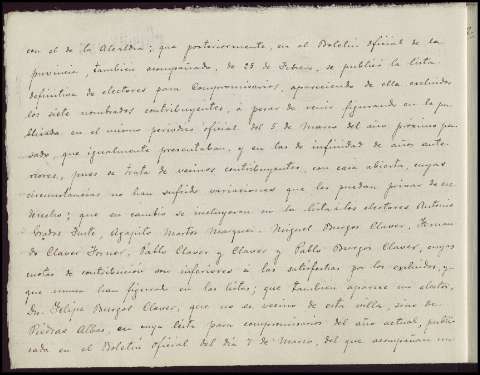 con el de la Alcaldia; que posteriormente, en el Boletin Oficial de la
provincia, tambien acompañado, de 25 de Febrero, se publicó la lista
definitiva de electores para Compromisarios, apareciendo de ella excluidos
los siete nombrados contribuyentes, á pesar de venir figurando en la pu-
blicada en el mismo periodico oficial del 5 de Marzo del año próximo pa-
sado, que igualmente presentaban, y en las de infinidad de años ante-
riores, pues se trata de vecinos contribuyentes, con casa abierta, cuyas
circunstancias no han sufrido variaciones que les puedan privar de su
derecho; que en cambio se incluyeron en la lista á los electores Antonio
Agapito Martos Marques, Miguel Burgos Claver, Fernan-
do Claver Pablo Claver y Claver y Pablo Burgos Claver, cuyas
cuotas de contribucion son inferiores á las satisfechas por los excluidos, y
que nunca han figurado en las listas; que tambien aparece un elector,
Dn. Felipe Burgos Claver, que no es vecino de esta villa, sino de
Piedras Albas, en cuya lista para compromisarios del año actual, publi-
cada en el Boletin oficial del dia 7 de Marzo, del que acompañan un